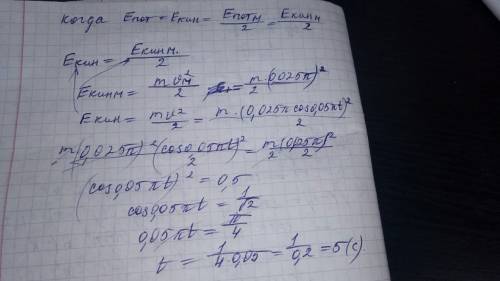 когда Eпот = Eкин = Eпотм/2 = Eкинм/2
Eкин = Eкинм./2
Eкинм = mυм²/2 = m/2 · (0,025π)²
Eкин = mυ²/2 = m·(0,025π cos0,05πt)²/2
m(0,025π)²(cos0,05πt)²/2 = m(0,025π)²/2·2
(cos0,05πt)² = 0,5
cos0,05πt = 1/√2
0,05πt = π/4
t = 1/4·0,05 = 1/0,2 = 5(с).